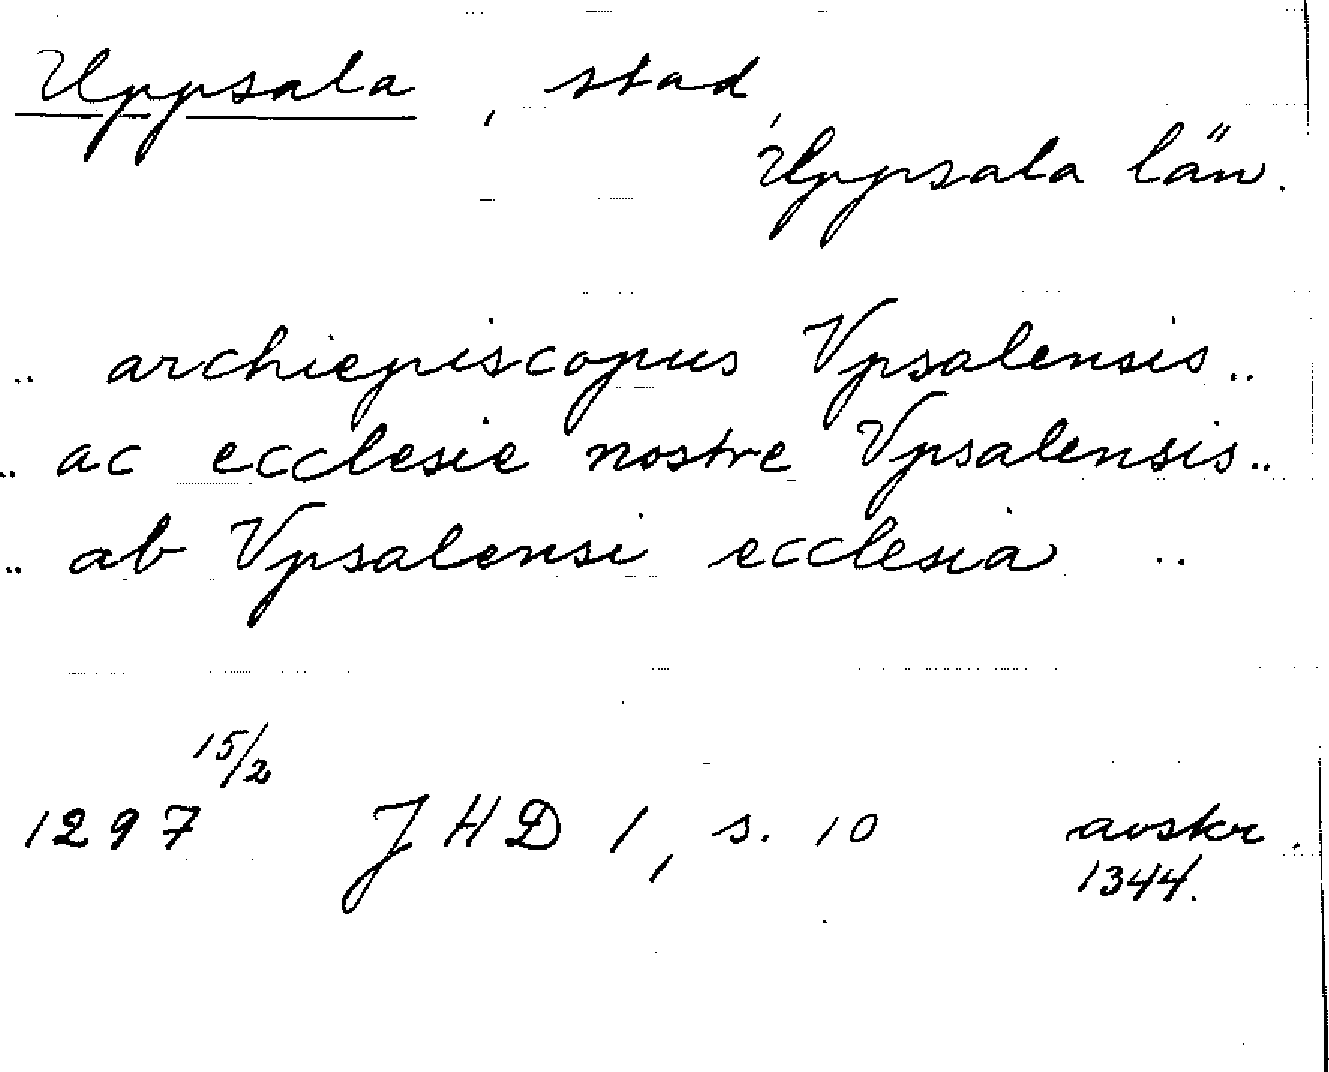 Uppsala, stad,
Uppsala län.
.. archiepiscopus Vpsalensis ..
.. ac ecclesie nostre Vpsalensis ..
.. ab Vpsalensi ecclesia ..
1297 15/2 JHD 1, s. 10 avskr.
1344.